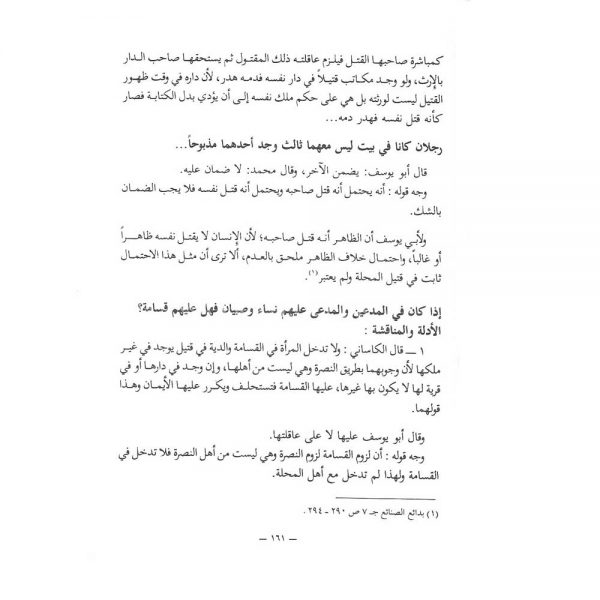 كمباشرة صاحبها القتل فيلزم عاقلته ذلك المقتول ثم يستحقها صاحب الدار
بالإرث، ولو وجد مكاتب قتيلاً في دار نفسه فدمه هدر، لأن داره في وقت ظهور
القتيل ليست لورثته بل هي على حكم ملك نفسه إلى أن يؤدي بدل الكتابة فصار
كأنه قتل نفسه فهدر دمه...
رجلان كانا في بيت ليس معهما ثالث وجد أحدهما مذبوحاً...
قال أبو يوسف: يضمن الآخر، وقال محمد: لا ضمان عليه.
وجه قوله: أنه يحتمل أنه قتل صاحبه ويحتمل أنه قتل نفسه فلا يجب الضمان
بالشك.
ولأبي يوسف أن الظاهر أنه قتل صاحبه؛ لأن الإنسان لا يقتل نفسه ظاهراً
أو غالباً، واحتمال خلاف الظاهر ملحق بالعدم، ألا ترى أن مثل هذا الاحتمال
ثابت في قتيل المحلة ولم يعتبر(١).
إذا كان في المدعين والمدعى عليهم نساء وصبيان فهل عليهم قسامة؟
الأدلة والمناقشة :
١ ــ قال الكاساني : ولا تدخل المرأة في القسامة والدية في قتيل يوجد في غير
ملكها لأن وجوبهما بطريق النصرة وهي ليست من أهلها، وإن وجد في دارها أو في
قرية لها لا يكون بها غيرها، عليها القسامة فتستحلف ويكرر عليها الأيمان وهذا
قولهما.
وقال أبو يوسف عليها لا على عاقلتها.
وجه قوله : أن لزوم القسامة لزوم النصرة وهي ليست من أهل النصرة فلا تدخل في
القسامة ولهذا لم تدخل مع أهل المحلة.
(١) بدائع الصنائع جـ ٧ ص ٢٩٠ - ٢٩٤ .
— ١٦١ —